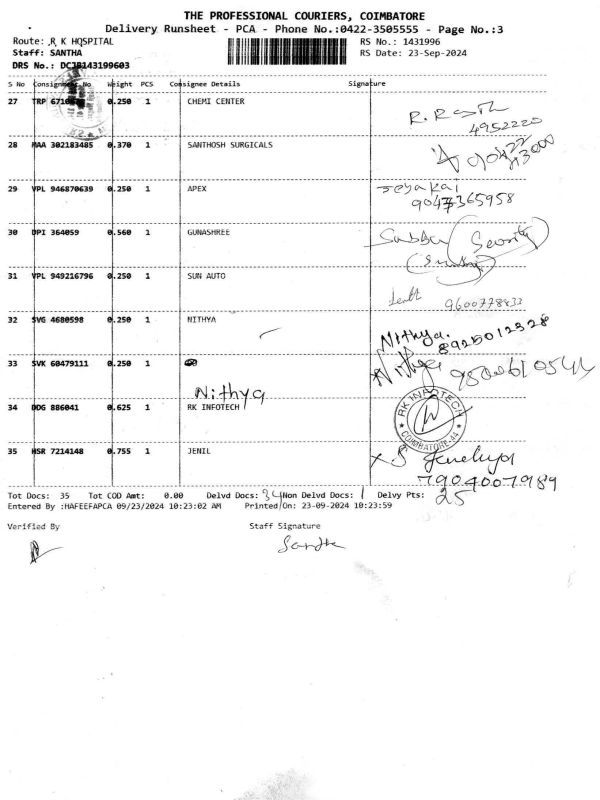 THE PROFESSIONAL COURIERS, COIMBATORE
Delivery Runsheet - PCA - Phone No.:0422-3505555 - Page No.:3
Route: R K HOSPITAL RS No.: 1431996
Staff: SANTHA RS Date: 23-Sep-2024
DRS No.: DC
S No Consignment No Weight PCS Consignee Details Signature
27 TRP 0.250 1 CHEMI CENTER
4952220
28 MAA 302183485 0.370 1 SANTHOSH SURGICALS
29 VPL 946870639 0.250 1 APEX Jeyakai
9047365958
30 DPI 364059 0.560 1 GUNASHREE
31 VPL 949216796 0.250 1 SUN AUTO
9600778833
32 SVG 4680598 0.250 1 NITHYA Nithya.
8925012328
33 SVK 60479111 0.250 1 Nithya
Nithya
34 DDG 886041 0.625 1 RK INFOTECH RK INFOTECH COIMBATORE-44
35 HSR 7214148 0.755 1 JENIL
7904007989
Tot Docs: 35 Tot COD Amt: 0.00 Delvd Docs: 34 Non Delvd Docs: 1 Delvy Pts: 25
Entered By :HAFEEFAPCA 09/23/2024 10:23:02 AM Printed On: 23-09-2024 10:23:59
Verified By Staff Signature
Santha